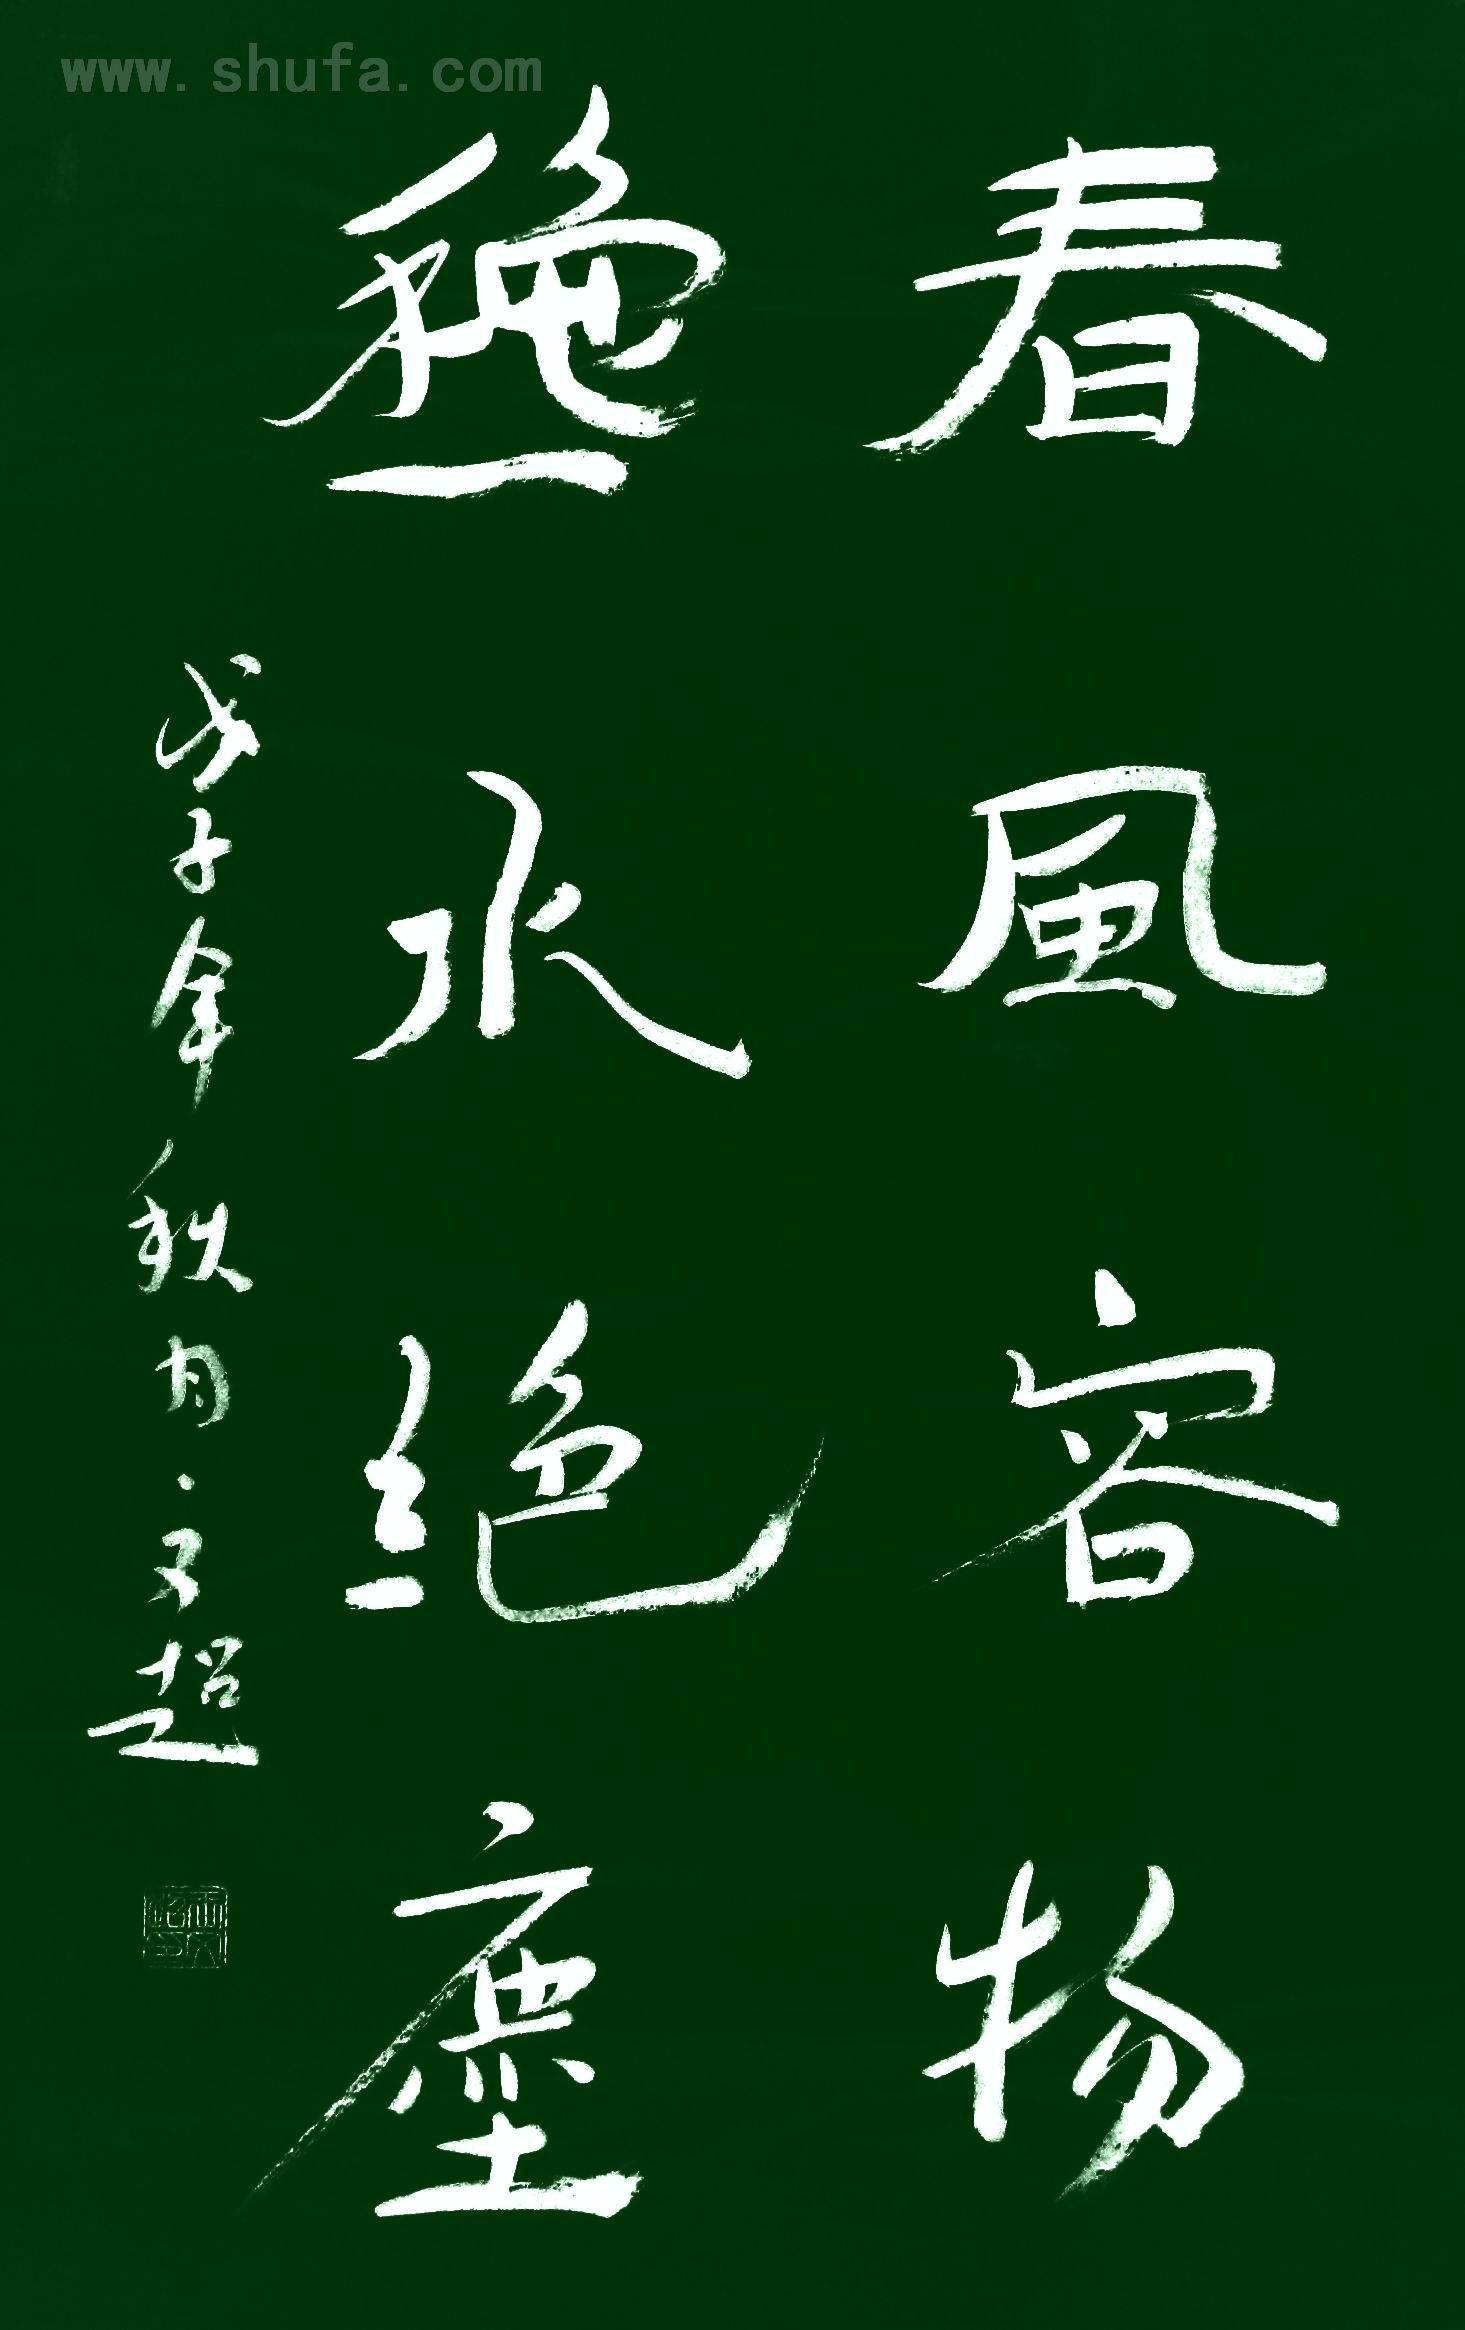 www.shufa.com
春風容物
龝水絶塵
戊子年秋月文超